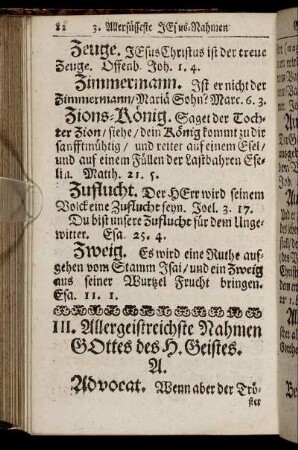 82 3. Allersüsseste JEsus-Nahmen
Zeuge. JEsus Christus ist der treue
Zeuge. Offenb. Joh. 1. 4.
Zimmermann. Ist er nicht der
Zimmermann/ Mariä Sohn? Marc. 6. 3.
Zions-König. Saget der Toch-
ter Zion/ siehe/ dein König kommt zu dir
sanfftmühtig/ und reitet auf einem Esel/
und auf einem Füllen der lastbahren Ese-
lin. Matth. 21. 5.
Zuflucht. Der HErr wird seinem
Volck eine Zuflucht seyn. Joel. 3. 17.
Du bist unsere Zuflucht für dem Unge-
witter. Esa. 25. 4.
Zweig. Es wird eine Ruthe auf-
gehen vom Stamm Isai/ und ein Zweig
aus seiner Wurtzel Frucht bringen.
Esa. 11. 1.
III. Allergeistreichste Nahmen
GOttes des H. Geistes.
A.
Advocat. Wenn aber der Trö-
ster